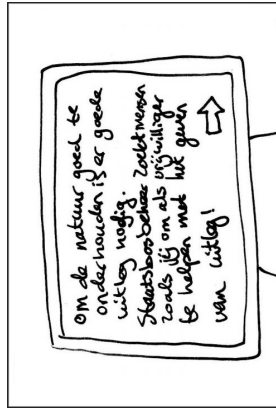 om de natuur goed te
onderhouden is er goede
uitleg nodig.
Staatsbosbeheer zoekt mensen
zoals jij om als vrijwilliger
te helpen met het geven
van uitleg!